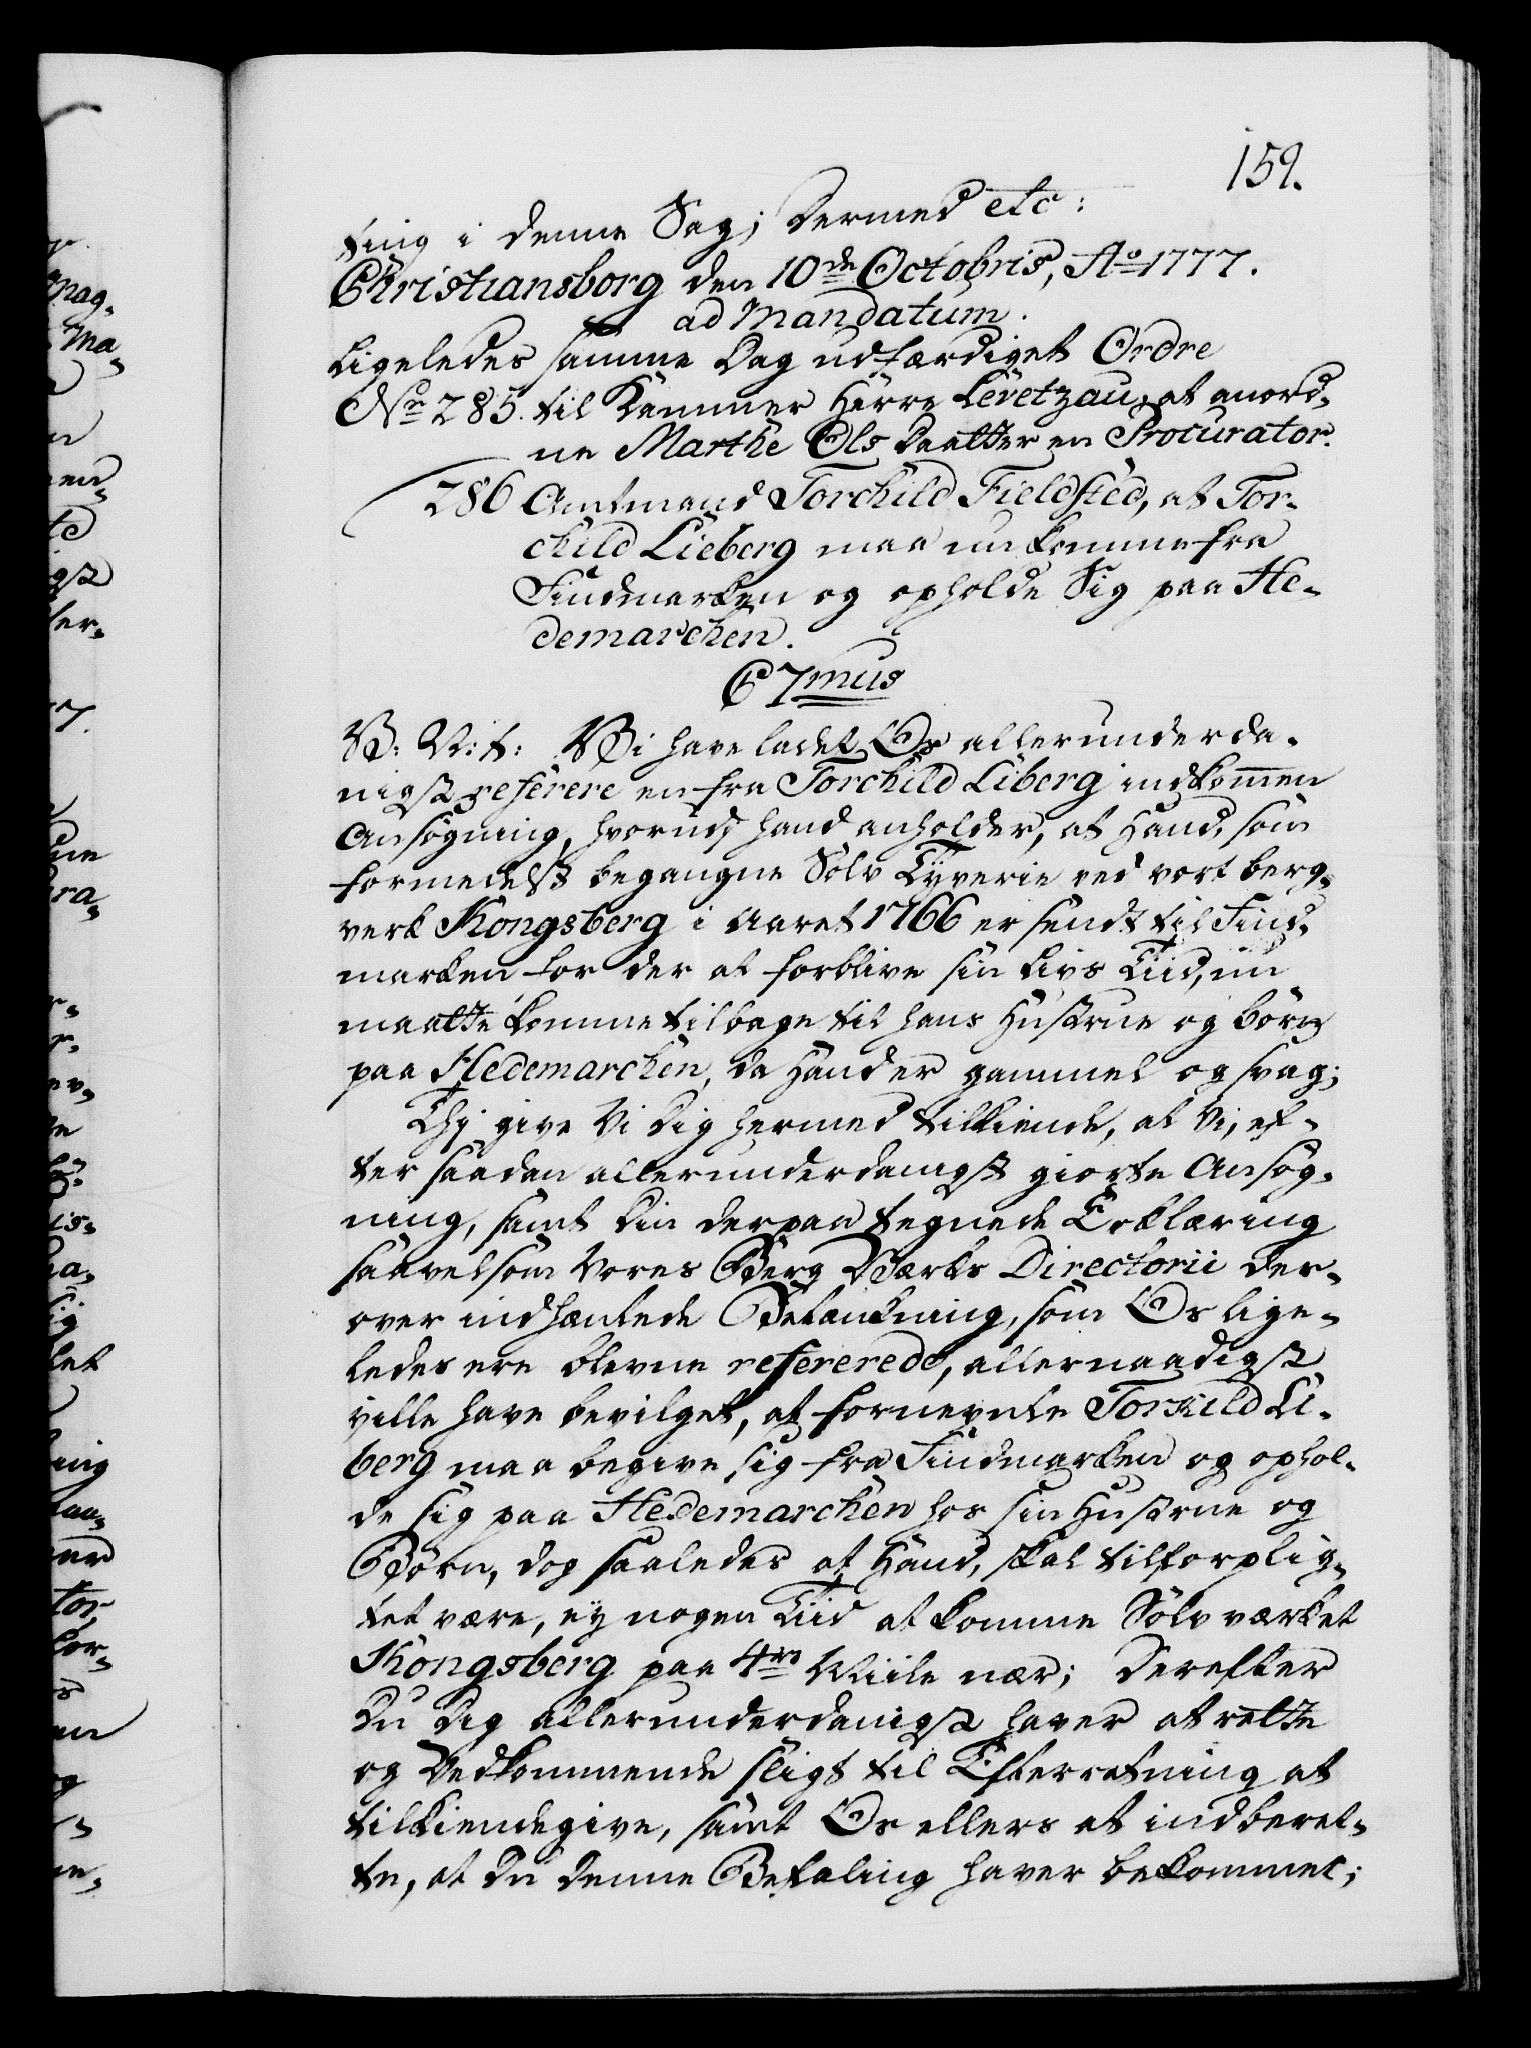 159.
ting i denne Sag; Dermed etc:
Christiansborg den 10de Octobris, Ao 1777.
ad Mandatum.
Ligeledes samme Dag udfærdiget Ordre
No 285. til Kammer Herre Levetzau, at anord-
ne Marthe Ols Daatter en Procurator.
286 Amtmand Torchild Fieldsted, at Tor-
child Lieberg maa nu komme fra
Findmarken og opholde Sig paa He-
demarchen.
C 7mus
V: V: t: Vi have ladet Os allerunderda-
nigst referere en fra Torchild Liberg indkommen
Ansøgning, hvorudj hand anholder, at Hand, som
formedelst begangne Sølv Tyverie ved vort berg-
verk Kongsberg i Aaret 1766 er sendt til Find-
marken for der at forblive sin Livs Tiid, nu
maatte komme tilbage til hans Hustrue og børn
paa Hedemarchen, da Hand er gammel og svag;
Thj give Vi Dig hermed tilkiende, at Vi, ef-
ter saadan allerunderdanigst giorte Ansøg-
ning, samt Din derpaa tegnede Erklæring
saavelsom Vores Berg Værks Directorii der-
over indhentede Betænkning, som Os lige-
ledes ere blevne refererede, allernaadigst
ville have bevilget, at fornevnte Torkild Li-
berg maa begive sig fra Findmarken og ophol-
de sig paa Hedemarchen hos sin Hustrue og
Børn, dog saaledes at Hand, skal tilforplig-
tet være, ey nogen Tiid at komme Sølv værket
Kongsberg paa 4re Miile nær; Derefter
Du Dig allerunderdanigst haver at rette
og Vedkommende sligt til Efterretning at
tilkiendegive, samt Os ellers at indberet-
te, at Du Denne Befaling haver bekommet;